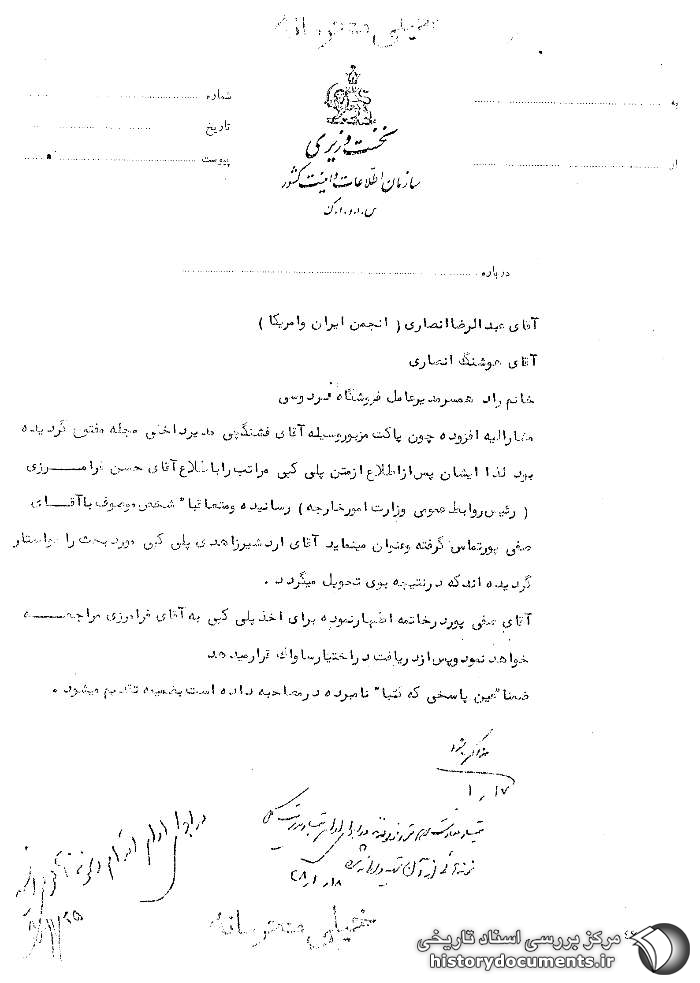 خیلی محرمانه
به
شماره
نخست وزیری
تاریخ
از
پیوست
سازمان اطلاعات و امنیت کشور
س.ا.و.ا.ک
درباره
آقای عبدالرضا انصاری ( انجمن ایران وامریکا )
آقای هوشنگ انصاری
خانم راد همسر مدیرعامل فروشگاه فردوسی
مشارالیه افزوده چون پاکت مزبور وسیله آقای قشنگچی مدیرداخلی مجله مفتوح گردیده
بود لذا ایشان پس از اطلاع ازمتن پلی کپی مراتب را باطلاع آقای حسن فرامرزی
( رئیس روابط عمومی وزارت امورخارجه ) رسانیده ومتعاقبا" شخص موصوف با آقای
صفی پورتماس گرفته وعنوان مینماید آقای اردشیرزاهدی پلی کپی مورد بحث را خواستار
گردیده اند که درنتیجه بوی تحویل میگردد .
آقای صفی پور درخاتمه اظهارنموده برای اخذ پلی کپی به آقای فرامرزی مراجعه
خواهد نمود وپس ازدریافت دراختیارساواک قرارمیدهد
ضمنا" عین پاسخی که کتبا" نامبرده درمصاحبه داده است بضمیمه تقدیم میشود .
خیلی محرمانه
مرکز بررسی اسناد تاریخی
historydocuments.ir